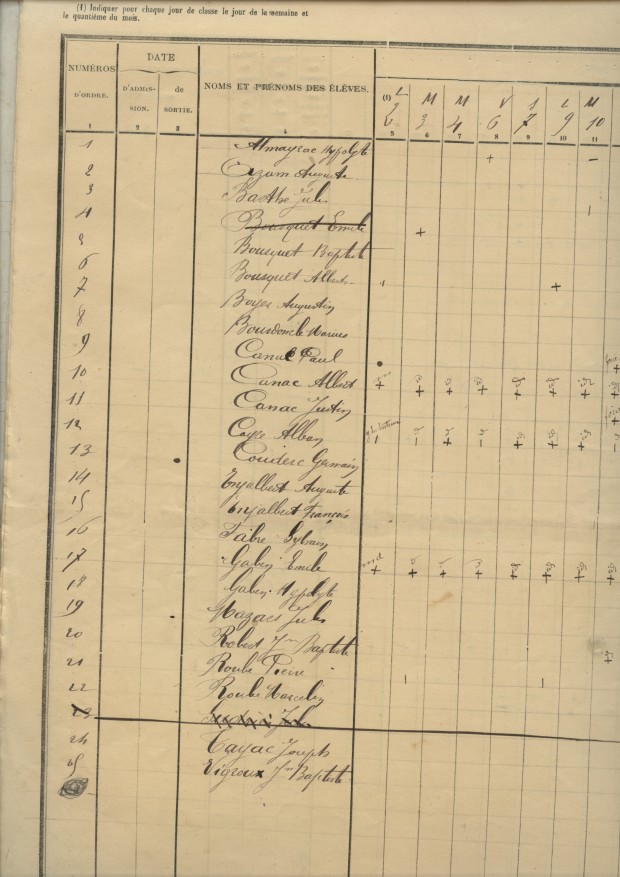 (1) Indiquer pour chaque jour de classe le jour de la semaine et
le quantième du mois.
NUMÉROS
D'ORDRE.
1
DATE
D'ADMIS-
SION.
2
de
SORTIE.
3
NOMS ET PRÉNOMS DES ÉLÈVES.
4
(1) L M M V S L M
2 3 4 6 7 9 10
5 6 7 8 9 10 11
1 Almayrac Hypolyte + -
2 Azam Auguste
3 Barthe Jules
4 Bousquet Emile +
5 Bousquet Baptiste
6 Bousquet Albert +
7 Boyer Augustin
8 Bourdoncle
9 Canac Paul
10 Canac Albert + + + + + + +
11 Canac Justin
12 Cayre Alban
13 Couderc Germain
14 Enjalbert Auguste
15 Enjalbert François
16 Fabre Sylvain
17 Galy Emile + + + + + + +
18 Hypolyte
19 Mazars Jules
20 Robert Jn Baptiste
21 Pierre
22 Marcelin
23
24 Cayac Joseph
25 Vigroux Jn Baptiste